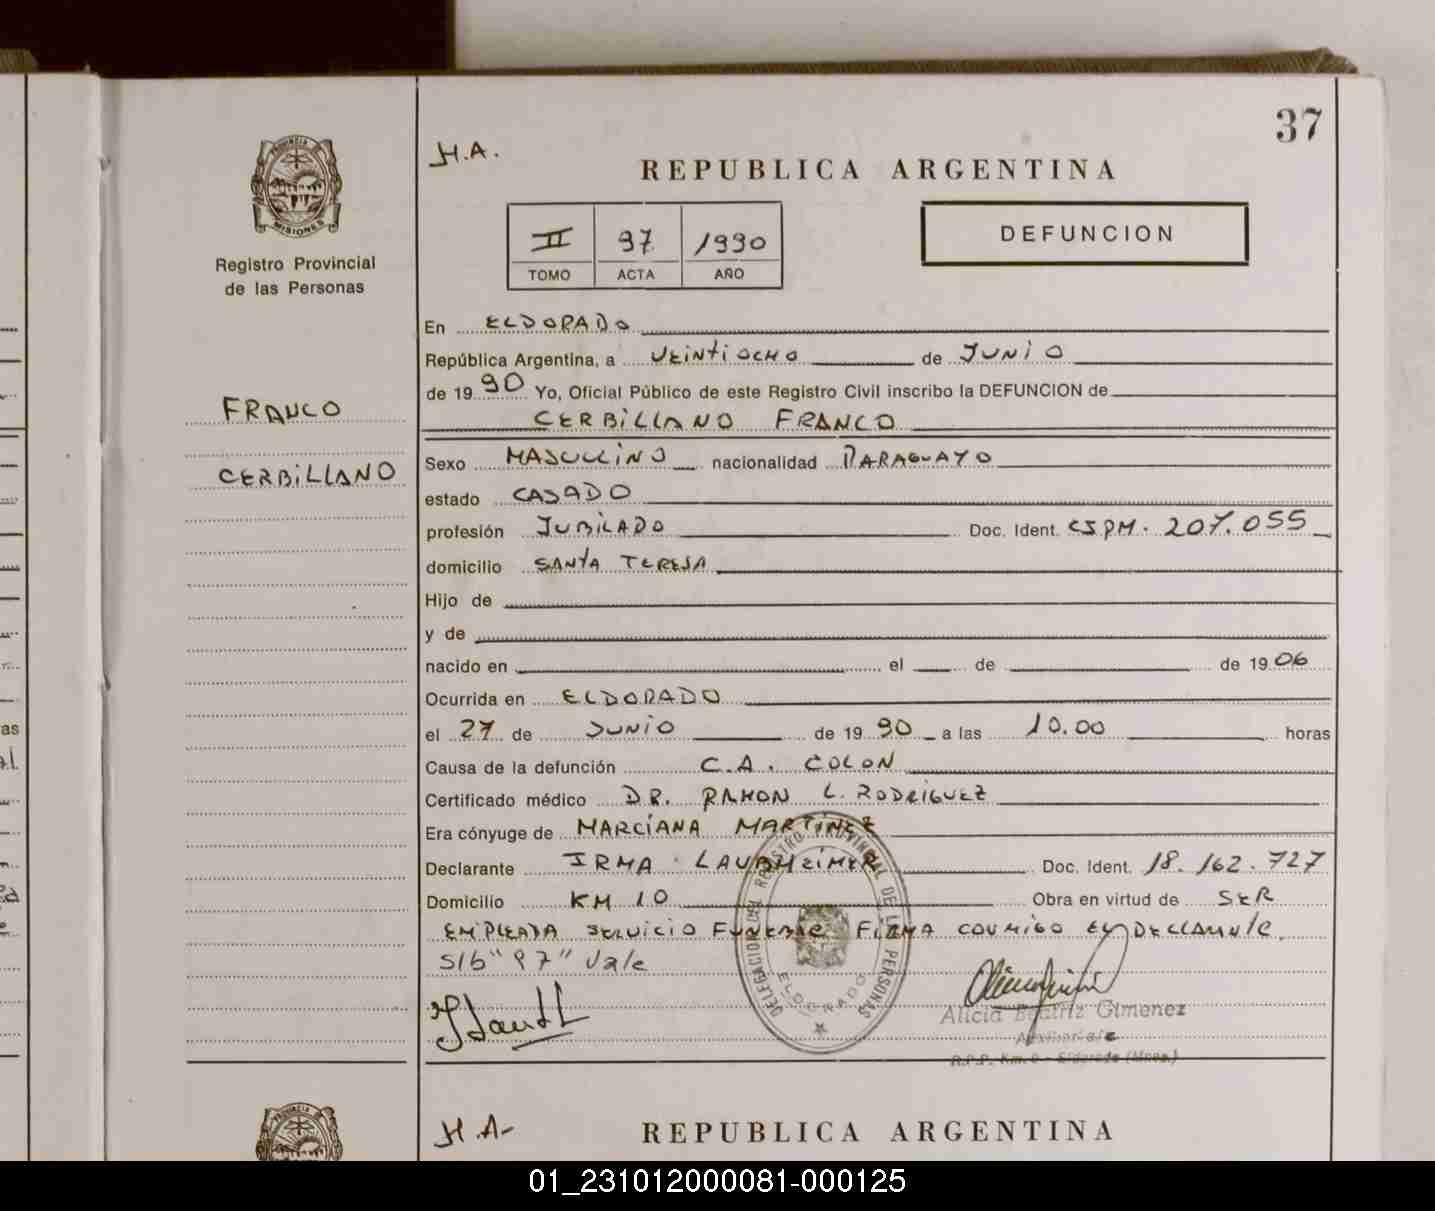 37
H.A.
REPUBLICA ARGENTINA
PROVINCIA DE
MISIONES
Registro Provincial
de las Personas
II 97 1990
TOMO ACTA AÑO
DEFUNCION
FRANCO
CERBILLANO
En ELDORADO
República Argentina, a VEINTIOCHO de JUNIO
de 1990 Yo, Oficial Público de este Registro Civil inscribo la DEFUNCION de
CERBILLANO FRANCO
Sexo MASCULINO nacionalidad PARAGUAYO
estado CASADO
profesión JUBILADO Doc. Ident. CIPM. 207.055
domicilio SANTA TERESA
Hijo de
y de
nacido en el de de 1906
Ocurrida en ELDORADO
el 27 de JUNIO de 1990 a las 10.00 horas
Causa de la defunción C.A. COLON
Certificado médico DR. RAMON L. RODRIGUEZ
Era cónyuge de MARCIANA MARTINEZ
Declarante IRMA LAUBHEIMER Doc. Ident. 18.162.727
Domicilio KM 10 Obra en virtud de SER
EMPLEADA SERVICIO FUNEBRE FIRMA CONMIGO EL DECLARANTE.
S/b "97" Vale
DELEGACION DEL REGISTRO PROVINCIAL DE LAS PERSONAS
ELDORADO
Alicia Beatriz Gimenez
Auxiliar a/c
R.P.P. Km. 9 - Eldorado (Mnes.)
H.A-
REPUBLICA ARGENTINA
PROVINCIA DE
01_231012000081-000125